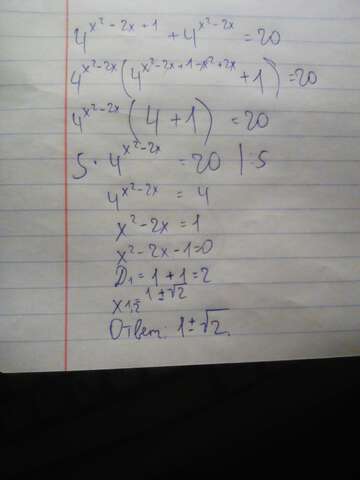 4^{x²-2x+1} + 4^{x²-2x} = 20
4^{x²-2x}(4^{x²-2x+1-x²+2x} + 1) = 20
4^{x²-2x}(4 + 1) = 20
5 · 4^{x²-2x} = 20 | :5
4^{x²-2x} = 4
x² - 2x = 1
x² - 2x - 1 = 0
D₁ = 1 + 1 = 2
x₁,₂ = 1 ± √2
Ответ: 1 ± √2.